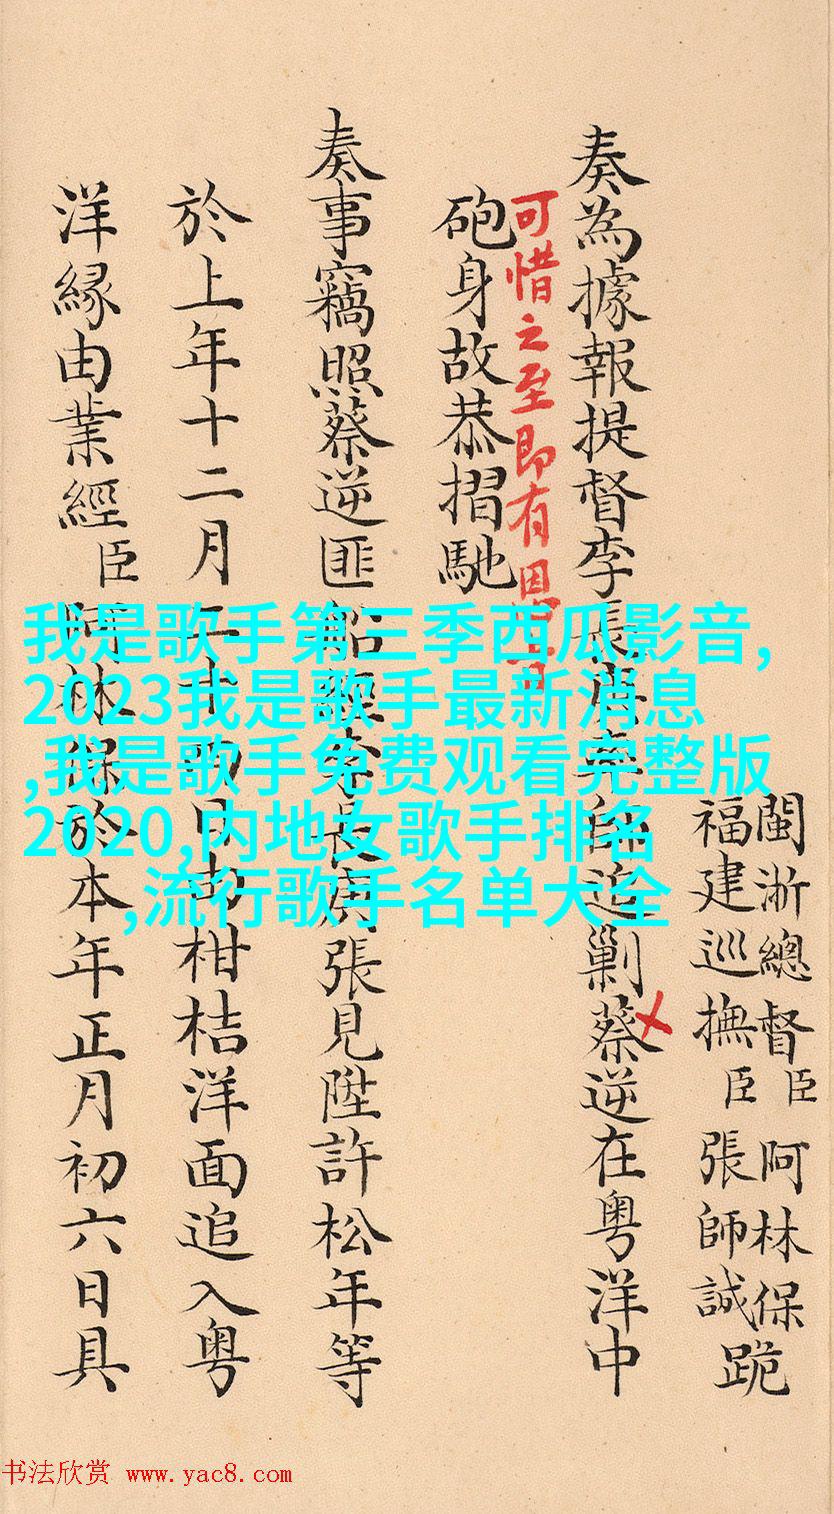 閩浙總督臣阿林保
福建巡撫臣張師誠跪
奏為據報提督李長庚率師追剿蔡逆在粵洋中
可惜之至即有恩旨
砲身故恭摺馳
奏事竊照蔡逆匪船經李長庚張見陞許松年等
於上年十二月二十四日柑桔洋面追入粵
洋緣由業經臣阿林保於本年正月初六日具
我是歌手第三季西瓜影音,
2023我是歌手最新消息
,我是歌手免费观看完整版
2020,内地女歌手排名
,流行歌手名单大全
书法欣赏 www.yac8.com